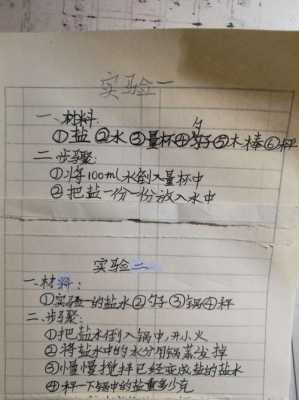 实验一
一、材料:
①盐 ②水 ③量杯 ④勺子 ⑤木棒 ⑥秤
二 步骤:
①将100ml水倒入量杯中
②把盐一份一份放入水中
实验二
一、材料:
①实验一的盐水 ②勺子 ③锅 ④秤
二、步骤:
①把盐水倒入锅中,开小火
②将盐水中的水分用锅蒸发掉
③慢慢搅拌已经变成盐的盐水
④秤一下锅中的盐重多少克